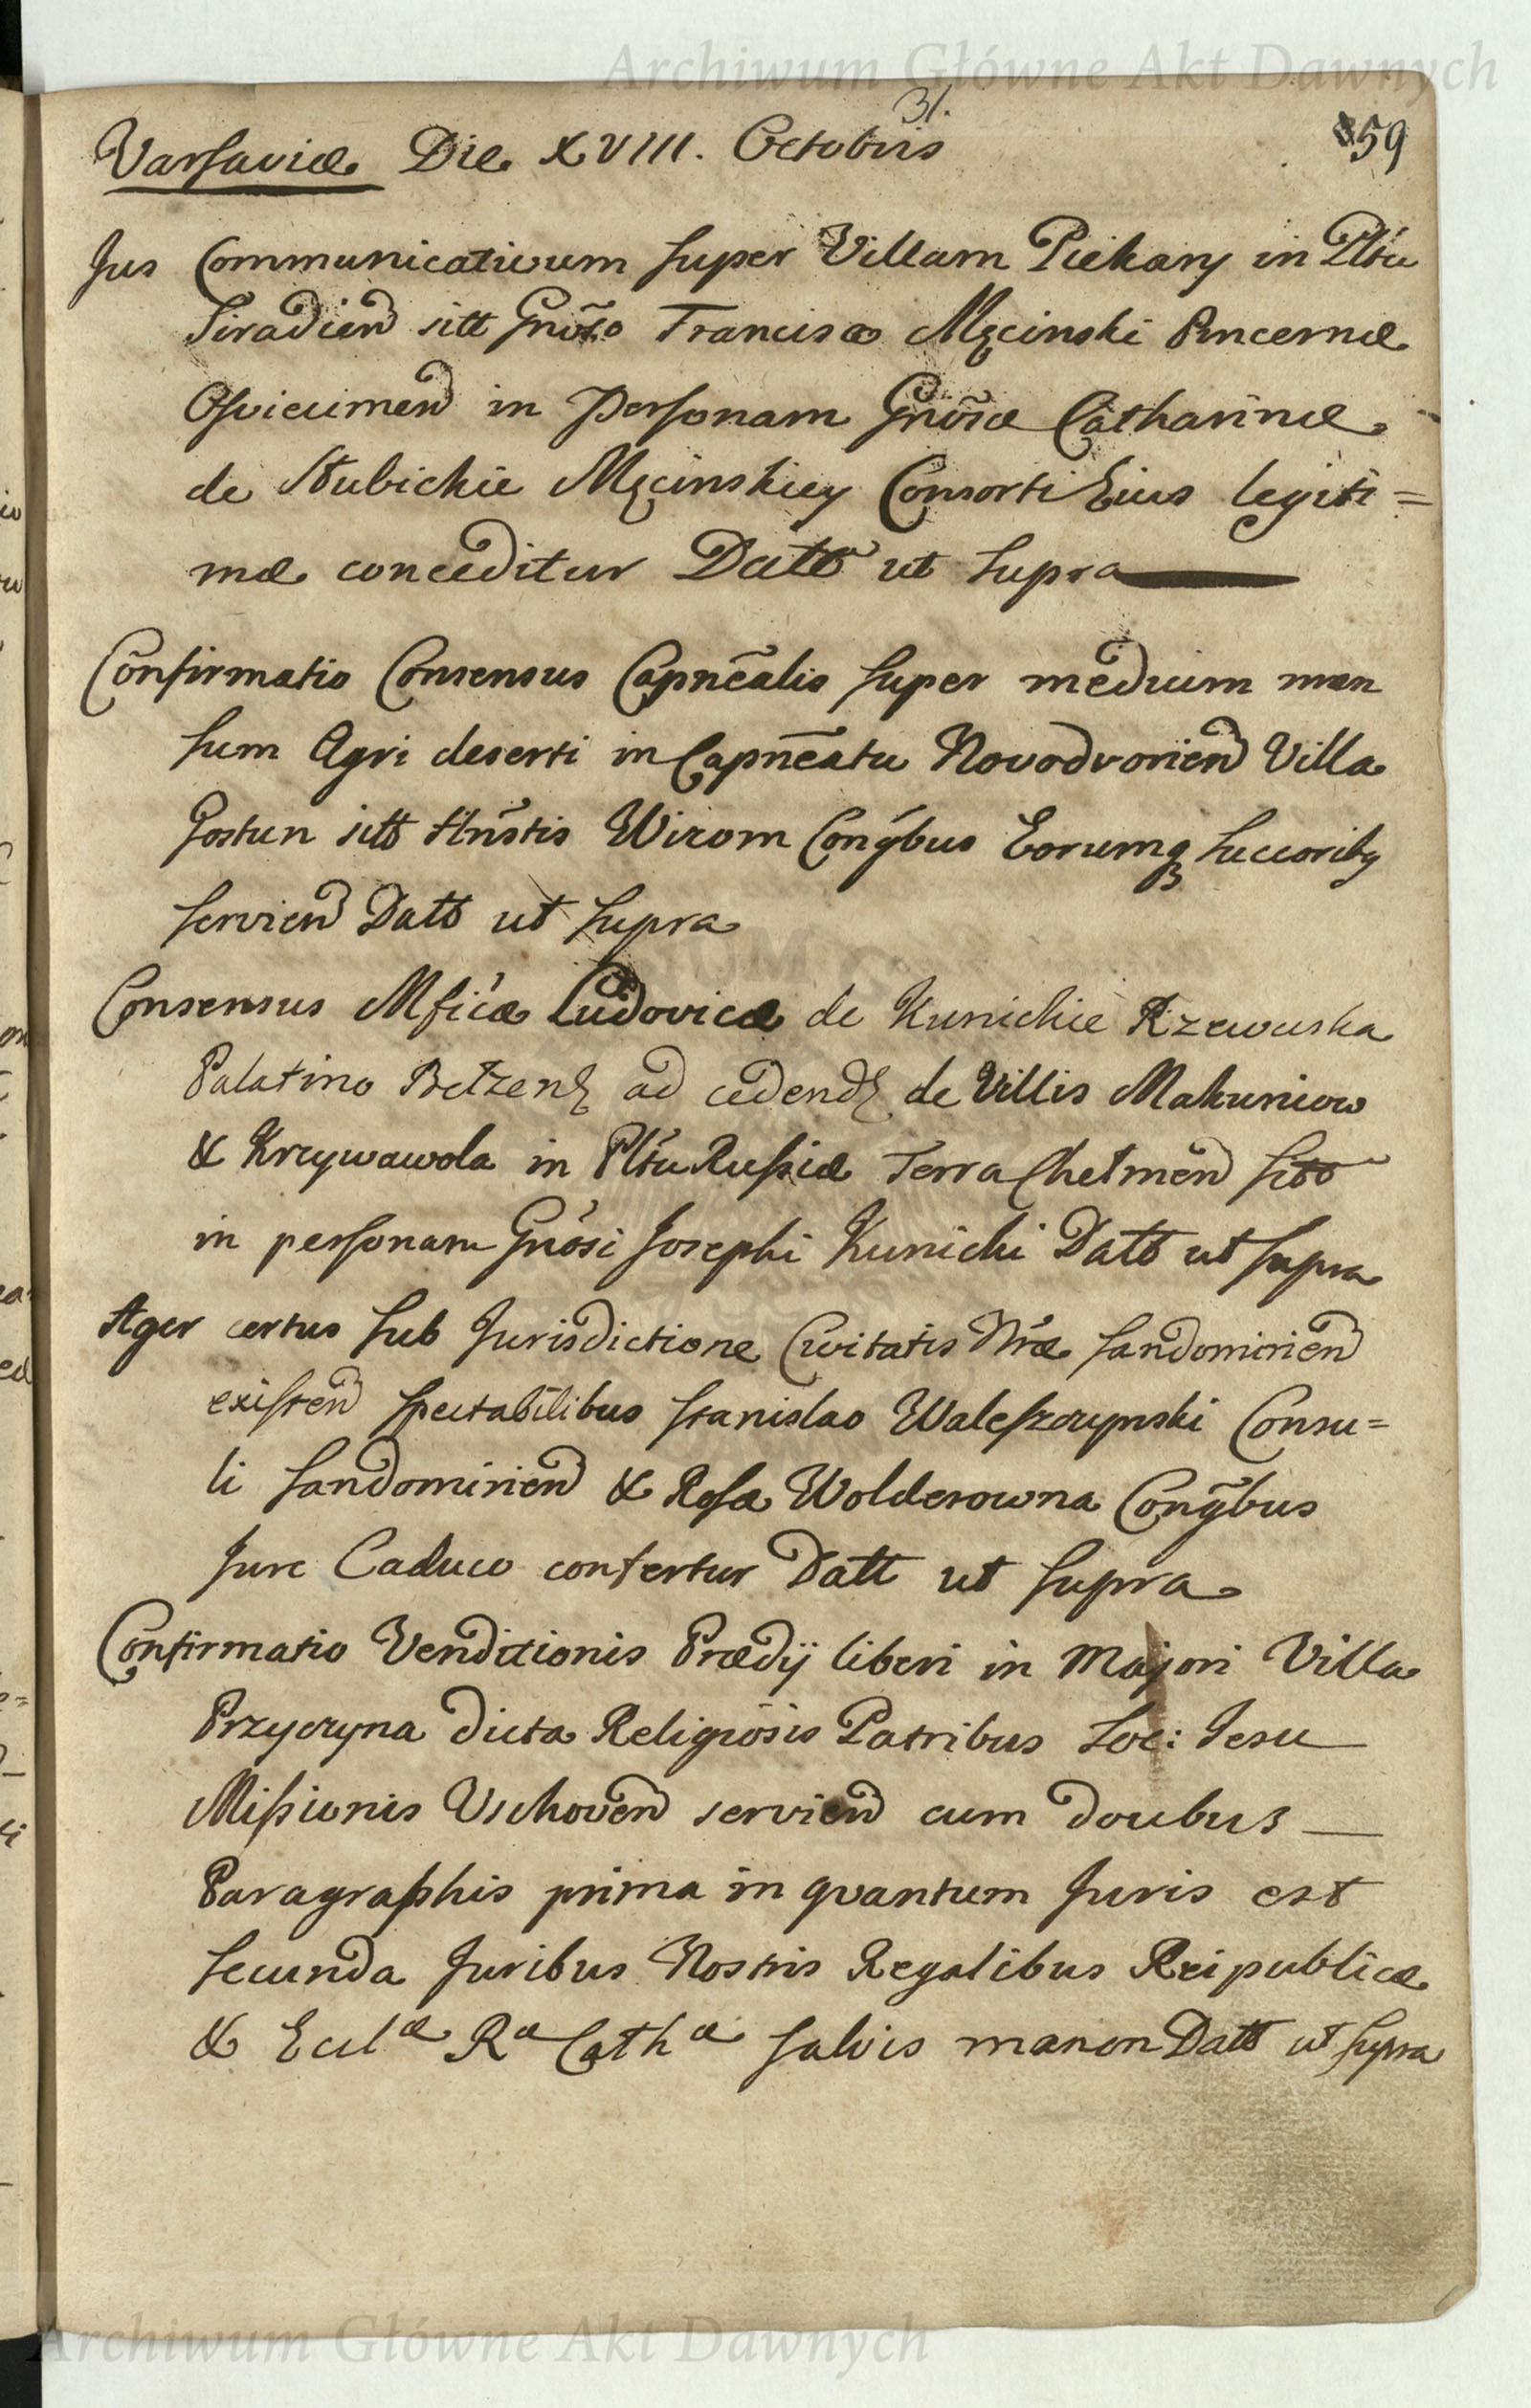 Archiwum Główne Akt Dawnych
31.
Varsaviæ Die XVIII. Octobris
59
Jus Communicativum super Villam Piekary in Pltu
Siradien sitt Gnoso Francisco Męcinski Pincernæ
Osviecimen in Personam Gnosæ Catharinæ
de Stubickie Męcinskiey Consorti Eius legiti=
mæ conceditur Datt ut supra
Confirmatio Consensus Capnealis super medium man
sum Agri deserti in Capneatu Novodvorien Villa
Gostun sitt Hnstis Wirom Congbus Eorumq succoribq
servien Datt ut supra
Consensus Mficæ Ludovicæ de Kunickie Rzewuska
Palatino Betzen ad cedend de Villis Makuniow
& Krzywawola in Pltu Russiæ Terra Chelmen sitt
in personam Gnosi Josephi Kunicki Datt ut supra
Ager certus sub Jurisdictione Civitatis Nræ Sandomirien
existen spectabilibus Stanislao Waleszczynski Consu=
li Sandomirien & Rosæ Wolderowna Congbus
Jure Caduco confertur Datt ut supra
Confirmatio Venditionis Prædij liberi in Majori Villa
Przyczyna dicta Religiosis Patribus Soc: Jesu
Missionis Vschoven servien cum doubus
Paragraphis prima in quantum Juris est
secunda Juribus Nostris Regalibus Reipublicæ
& Eccl^æ R^æ Cath^æ salvis manen Datt ut supra
Archiwum Główne Akt Dawnych